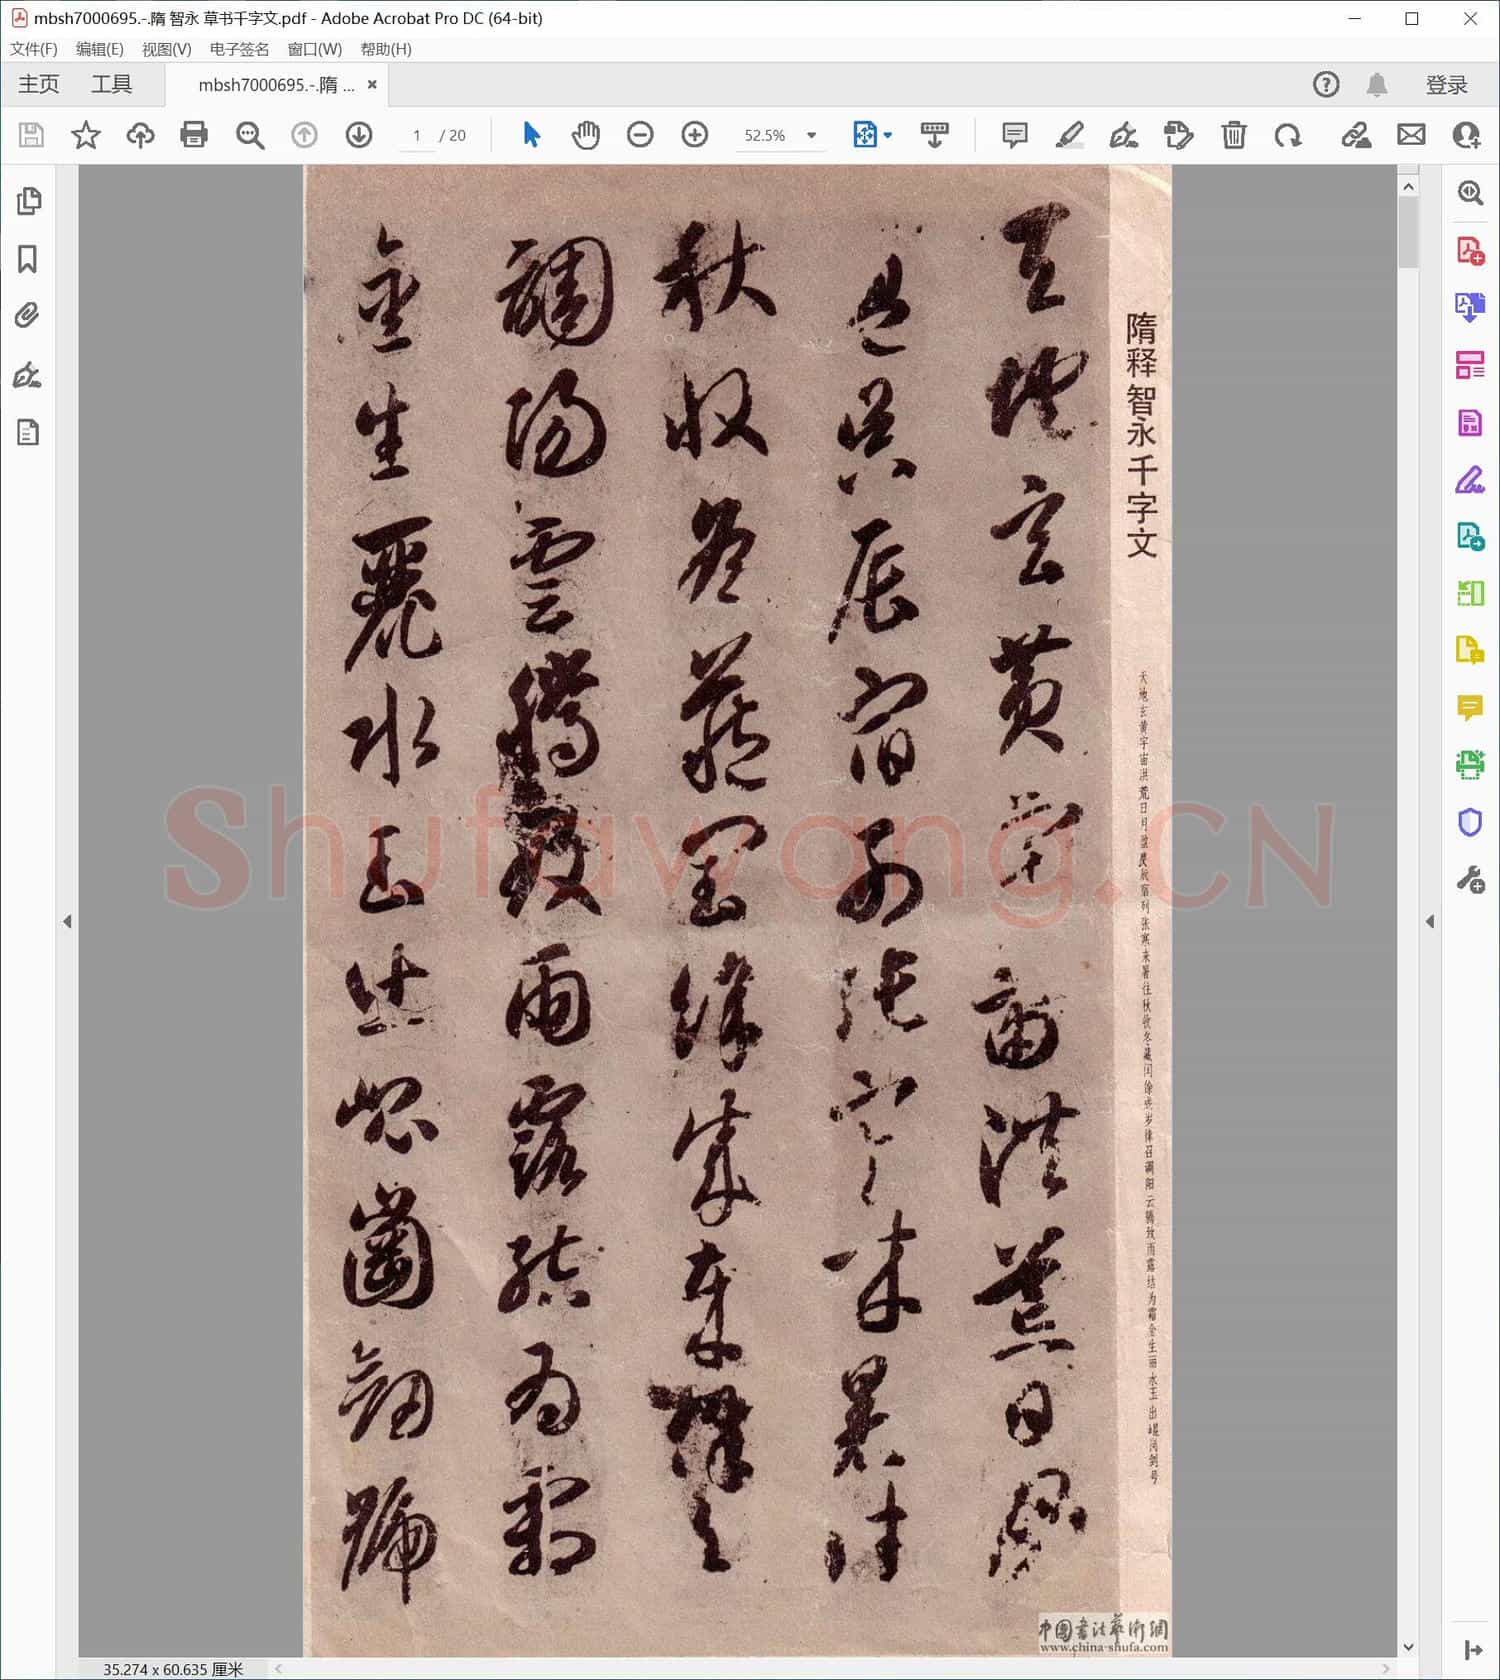 mbsh7000695.-.隋 智永 草书千字文.pdf - Adobe Acrobat Pro DC (64-bit)
文件(F) 编辑(E) 视图(V) 电子签名 窗口(W) 帮助(H)
主页 工具 mbsh7000695.-.隋 ... 登录
1 / 20 52.5%
隋释智永千字文
天地玄黄宇宙洪荒日月盈昃辰宿列张寒来暑往秋收冬藏闰馀成岁律召调阳云腾致雨露结为霜金生丽水玉出崐冈剑号
天地玄黄宇宙洪荒日月
盈昃辰宿列張寒来暑往
秋收冬藏閏餘成歲律召
調陽雲騰致雨露結為霜
金生麗水玉出崐崗劍號
Shufawang.CN
中国书法艺术网
www.china-shufa.com
35.274 x 60.635 厘米